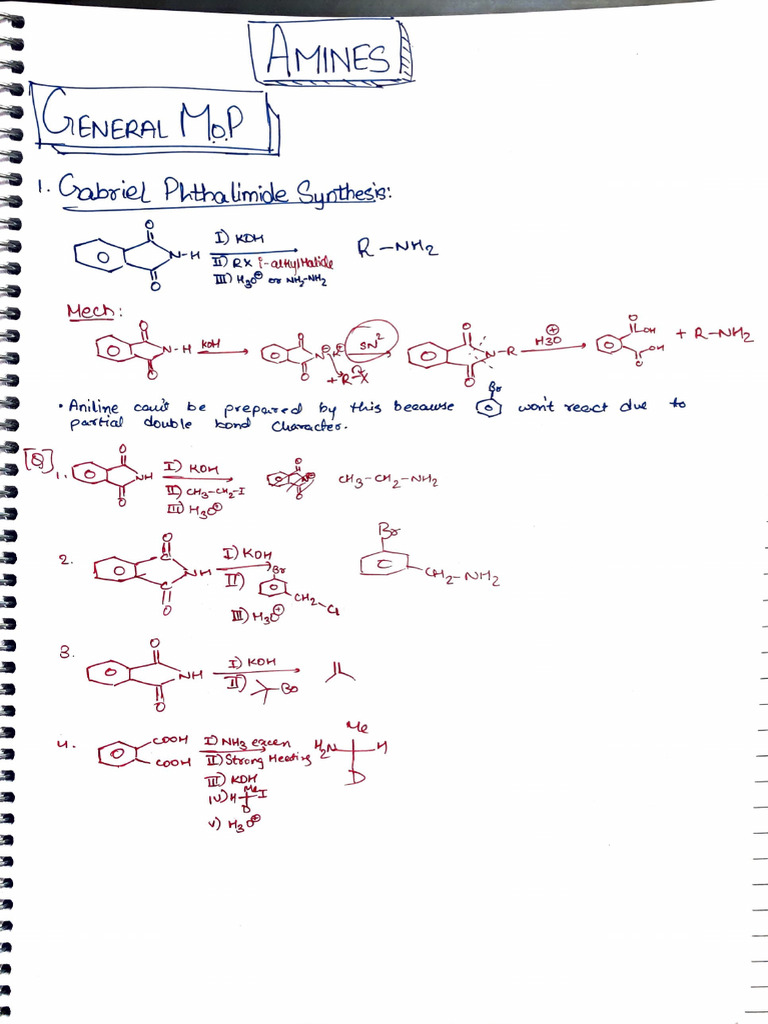 AMINES
GENERAL M.O.P
1. Gabriel Phthalimide Synthesis:
O
N-H
O
I) KOH
II) RX 1°-alkyl Halide
III) H3O⊕ or NH2-NH2
R-NH2
Mech:
O
N-H
O
KOH
O
N⊖ K⊕
O
+ R-X
SN2
O
N-R
O
H3O⊕
O
OH
OH
O
+ R-NH2
• Aniline can't be prepared by this because Br won't react due to
partial double bond character.
[Q]
1.
O
NH
O
I) KOH
II) CH3-CH2-I
III) H3O⊕
CH3-CH2-NH2
2.
O
C
NH
C
O
I) KOH
II) Br
CH2-Cl
III) H3O⊕
Br
CH2-NH2
3.
O
NH
O
I) KOH
II) Br
4.
COOH
COOH
I) NH3 excess
II) Strong Heating
III) KOH
IV) H Me I
D
V) H3O⊕
Me
H2N H
D